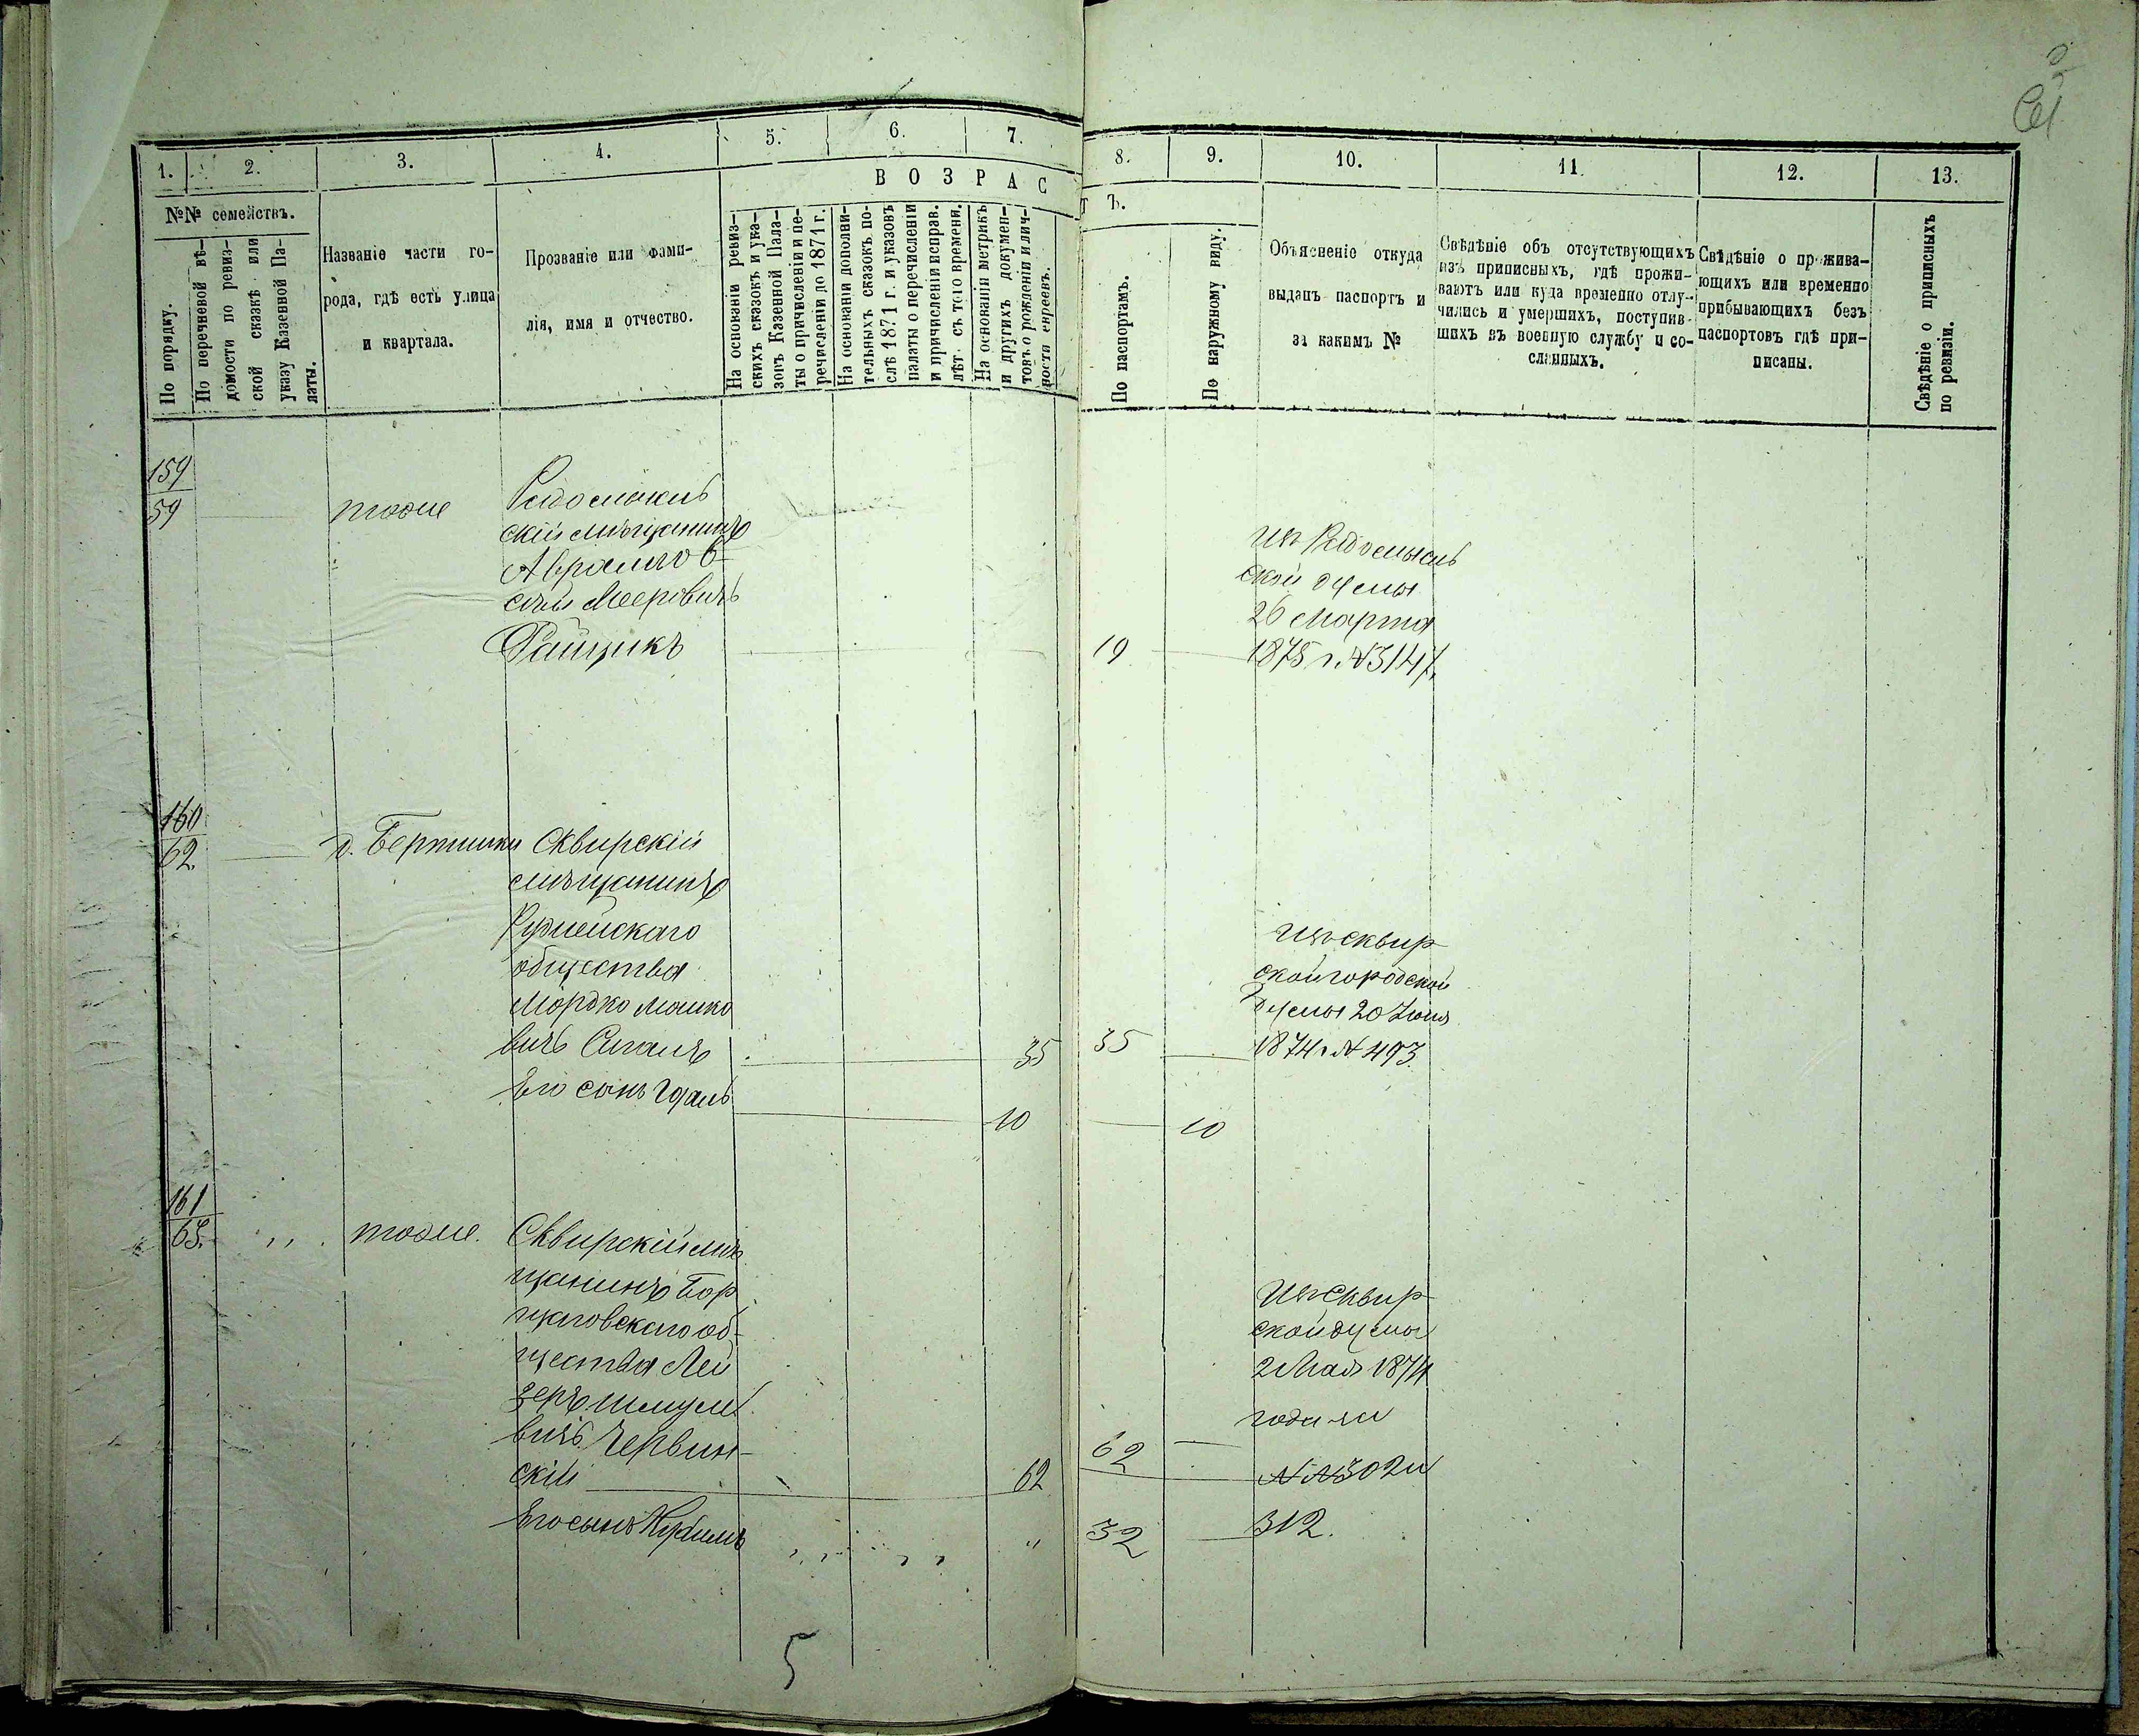 1.
2.
3.
4.
5.
6.
7.
8.
9.
10.
11.
12.
13.
В О З Р А С
Т Ъ.
№№ семействъ.
По порядку.
По перечневой вѣ-
домости по ревиз-
ской сказкѣ или
указу Казенной Па-
латы.
Названіе части го-
рода, гдѣ есть улица
и квартала.
Прозваніе или фами-
лія, имя и отчество.
На основаніи ревиз-
скихъ сказокъ и ука-
зовъ Казенной Пала-
ты о причисленіи и пе-
речисленіи до 1871 г.
На основаніи дополни-
тельныхъ сказокъ по-
слѣ 1871 г. и указовъ
палаты о перечисленіи
и причисленіи исправ.
лѣт. съ того времени.
На основаніи метрикъ
и другихъ докумен-
товъ о рожденіи и лич-
ности евреевъ.
По паспортамъ.
По наружному виду.
Объясненіе откуда
выданъ паспортъ и
за какимъ №
Свѣдѣніе объ отсутствующихъ
изъ приписныхъ, гдѣ прожи-
ваютъ или куда временно отлу-
чились и умершихъ, поступив-
шихъ въ военную службу и со-
сланныхъ.
Свѣдѣніе о прожива-
ющихъ или временно
прибывающихъ безъ
паспортовъ гдѣ при-
писаны.
Свѣдѣніе о приписныхъ
по ревизіи.
159
59
тоже
Радомысль
скій мѣщанинъ
Аврамъ
Мееровичъ
19
Изъ Радомысль
ской думы
26 Марта
1875 г. № 3147.
160
62.
д. Бертники
Сквирскій
мѣщанинъ
Ружинскаго
общества
Мордко Мошко
вичъ Сигалъ
35
35
Его сынъ
10
10
Изъ Сквир
ской городской
Думы 20 Іюня
1874 г № 493.
161
63.
тоже.
Сквирскій мѣ
щанинъ Бор
щаговскаго об-
щества Лей
зеръ Шмуле
вичъ Червин-
скій
62
62
Его сынъ Нухимъ
32
Изъ Сквир
ской думы
2 Мая 1874
года за
№№ 302 и
312.
5